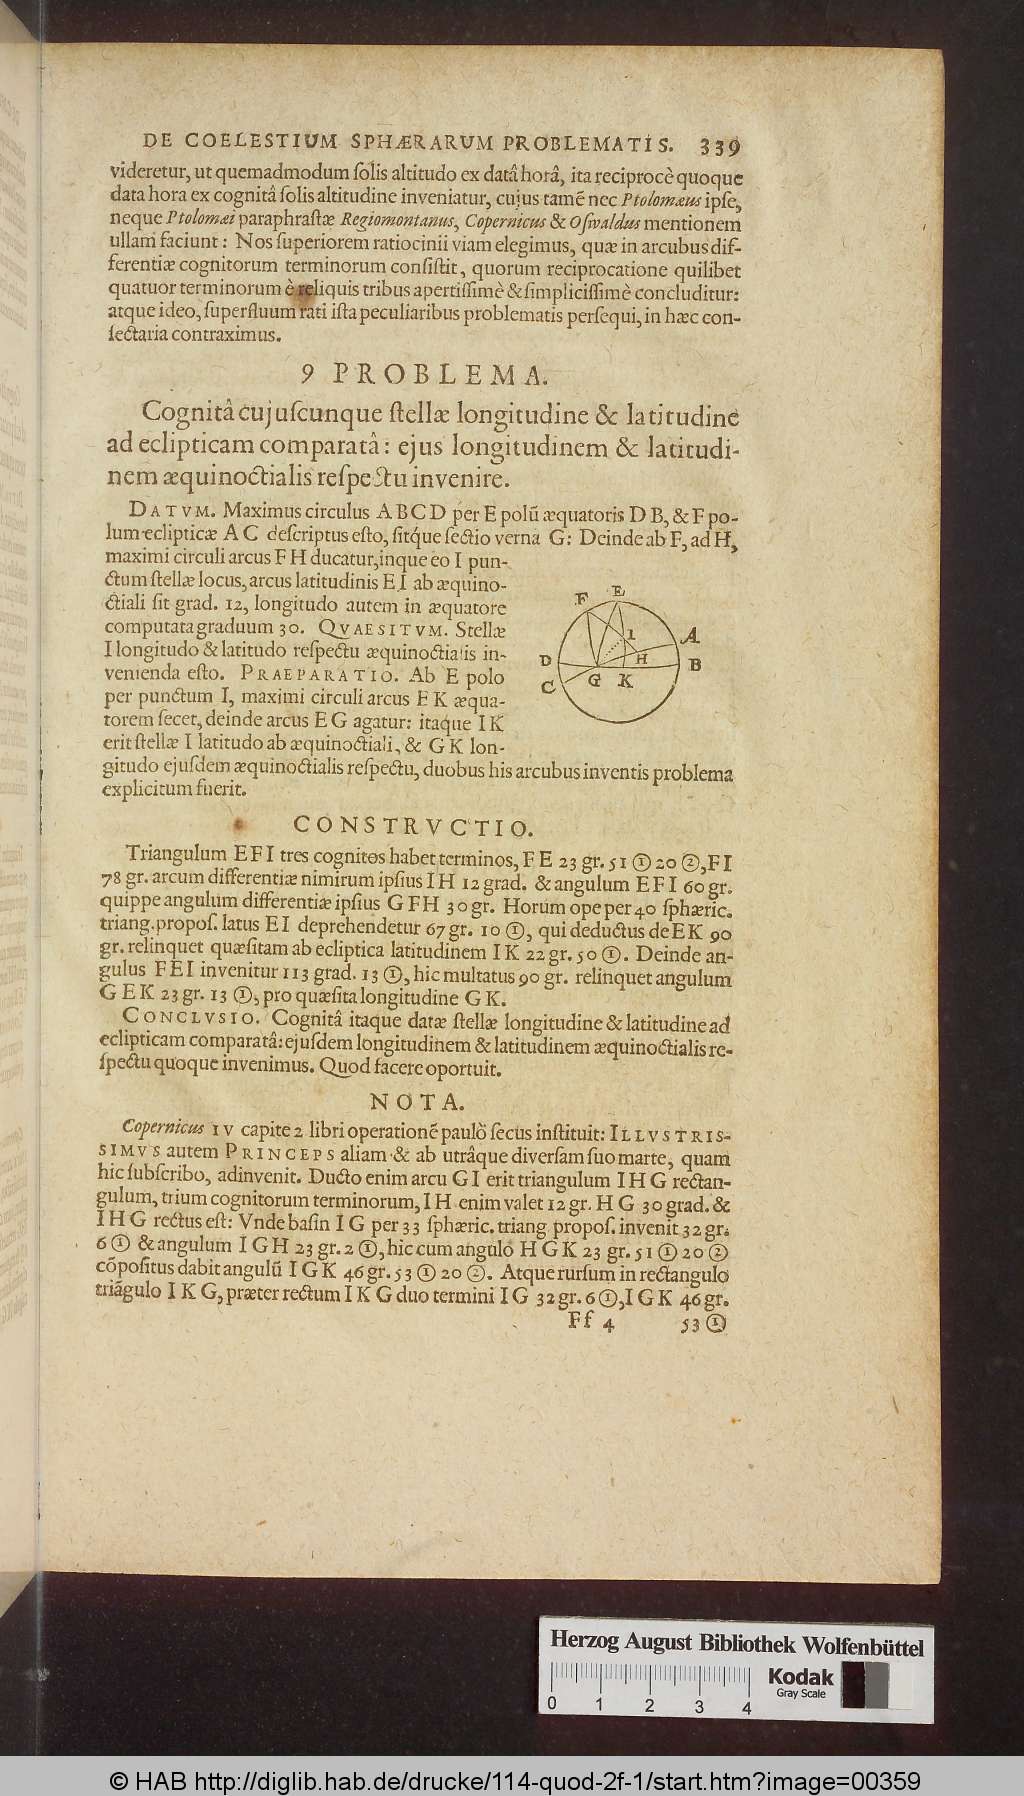 DE COELESTIUM SPHÆRARUM PROBLEMATIS. 339
videretur, ut quemadmodum ſolis altitudo ex datâ horâ, ita reciprocè quoque
data hora ex cognitâ ſolis altitudine inveniatur, cujus tamẽ nec Ptolomæus ipſe,
neque Ptolomæi paraphraſtæ Regiomontanus, Copernicus & Oſwaldus mentionem
ullam faciunt: Nos ſuperiorem ratiocinii viam elegimus, quæ in arcubus dif-
ferentiæ cognitorum terminorum conſiſtit, quorum reciprocatione quilibet
quatuor terminorum è reliquis tribus apertiſſimè & ſimpliciſſimè concluditur:
atque ideo, ſuperfluum rati iſta peculiaribus problematis perſequi, in hæc con-
ſectaria contraximus.
9 PROBLEMA.
Cognitâ cujuſcunque ſtellæ longitudine & latitudine
ad eclipticam comparatâ: ejus longitudinem & latitudi-
nem æquinoctialis reſpectu invenire.
DATVM. Maximus circulus ABCD per E polũ æquatoris DB, & F po-
lum eclipticæ AC deſcriptus eſto, ſitq́ue ſectio verna G: Deinde ab F, ad H,
maximi circuli arcus FH ducatur, inque eo I pun-
ctum ſtellæ locus, arcus latitudinis EI ab æquino-
ctiali ſit grad. 12, longitudo autem in æquatore
computata graduum 30. QVAESITVM. Stellæ
I longitudo & latitudo reſpectu æquinoctialis in-
venienda eſto. PRAEPARATIO. Ab E polo
per punctum I, maximi circuli arcus EK æqua-
torem ſecet, deinde arcus EG agatur: itaque IK
erit ſtellæ I latitudo ab æquinoctiali, & GK lon-
gitudo ejuſdem æquinoctialis reſpectu, duobus his arcubus inventis problema
explicitum fuerit.
F E
I
A
D H B
C G K
CONSTRVCTIO.
Triangulum EFI tres cognitos habet terminos, FE 23 gr. 51 ① 20 ②, FI
78 gr. arcum differentiæ nimirum ipſius IH 12 grad. & angulum EFI 60 gr.
quippe angulum differentiæ ipſius GFH 30 gr. Horum ope per 40 ſphæric.
triang. propoſ. latus EI deprehendetur 67 gr. 10 ①, qui deductus de EK 90
gr. relinquet quæſitam ab ecliptica latitudinem IK 22 gr. 50 ①. Deinde an-
gulus FEI invenitur 113 grad. 13 ①, hic multatus 90 gr. relinquet angulum
GEK 23 gr. 13 ①, pro quæſita longitudine GK.
CONCLVSIO. Cognitâ itaque datæ ſtellæ longitudine & latitudine ad
eclipticam comparatâ: ejuſdem longitudinem & latitudinem æquinoctialis re-
ſpectu quoque invenimus. Quod facere oportuit.
NOTA.
Copernicus IV capite 2 libri operationẽ paulò ſecus inſtituit: ILLVSTRIS-
SIMVS autem PRINCEPS aliam & ab utrâque diverſam ſuo marte, quam
hic ſubſcribo, adinvenit. Ducto enim arcu GI erit triangulum IHG rectan-
gulum, trium cognitorum terminorum, IH enim valet 12 gr. HG 30 grad. &
IHG rectus eſt: Vnde baſin IG per 33 ſphæric. triang. propoſ. invenit 32 gr.
6 ① & angulum IGH 23 gr. 2 ①, hic cum angulo HGK 23 gr. 51 ① 20 ②
cõpoſitus dabit angulũ IGK 46 gr. 53 ① 20 ②. Atque rurſum in rectangulo
triãgulo IKG, præter rectum IKG duo termini IG 32 gr. 6 ①, IGK 46 gr.
Ff 4 53 ①
Herzog August Bibliothek Wolfenbüttel
Kodak
Gray Scale
0 1 2 3 4
© HAB http://diglib.hab.de/drucke/114-quod-2f-1/start.htm?image=00359